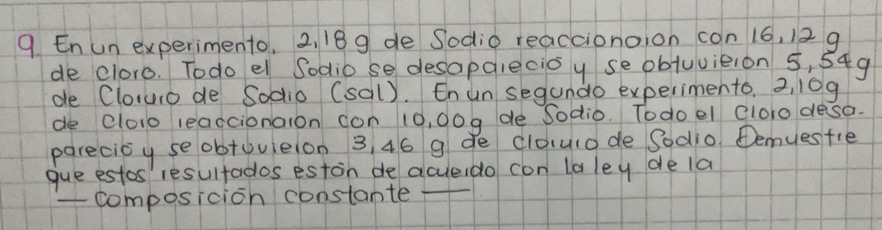 9 En un experimento, 2,18 g de Sodio reaccionaron con 16,12 g
de cloro. Todo el Sodio se desaparecio y se obtuvieron 5,54g
de Cloruro de Sodio (sal). En un segundo experimento, 2,10g
de cloro reaccionaron con 10,00g de Sodio. Todo el cloro desa-
pareció y se obtuvieron 3,46 g de cloruro de Sodio. Demuestre
que estos resultados están de acuerdo con la ley de la
— composición constante —